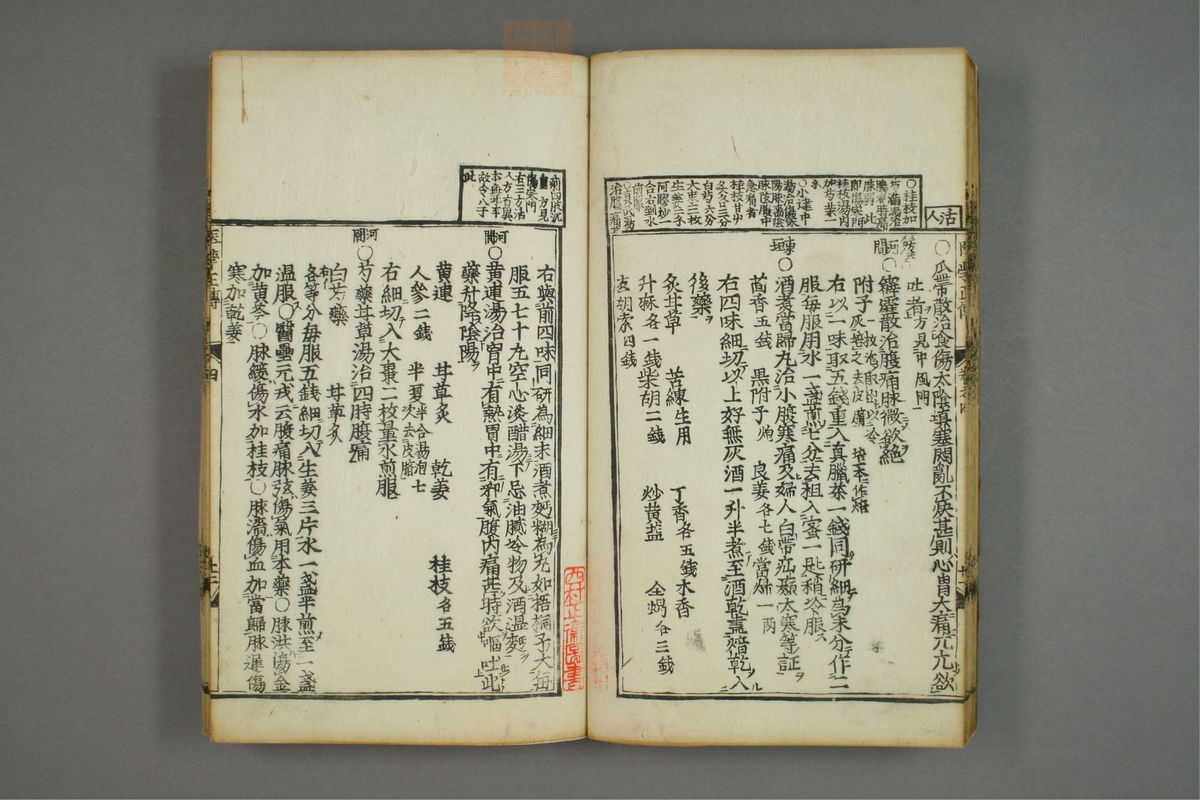 活人
○桂枝加
○小建中
○瓜蒂散治食傷太陰填塞悶亂不快甚則心胃大痛兀兀欲
吐者方見中風門
河間
○霹靂散治腹痛脉微欲絶
附子一枚炮取出以冷灰焙之去皮臍
右以一味取五錢重入真臘茶一錢同研細為末分作二
服毎服用水一盞煎七分去柤入蜜一匙稍冷服
東垣
○酒煮當歸丸治小腹寒痛及婦人白帶疝瘕大寒等証
茴香五錢 黒附子炮 良姜各七錢 當歸一両
右四味細切以上好無灰酒一升半煮至酒乾晝焙乾入
後藥
炙甘草 苦練生用 丁香各五錢 木香
升麻各一錢 柴胡二錢 炒黄盐 全蝎各三錢
玄胡索四錢
右與前四味同研為細末酒煮麪糊為丸如梧桐子大毎
服五七十丸空心淡醋湯下忌油膩冷物及酒温麺
河間
○黄連湯治胃中有熱胃中有邪氣腹内痛甚時欲嘔吐此
藥升降陰陽
黄連 甘草炙 乾姜 桂枝各五錢
人參二錢 半夏半合湯泡七次去皮臍
右細切入大棗二枚量水煎服
河間
○芍藥甘草湯治四時腹痛
白芍藥 甘草炙
各等分毎服五錢細切入生姜三片水一盞半煎至一盞
温服○醫壘元戎云腹痛脉弦傷氣用本藥○脉洪傷金
加黄芩○脉緩傷水加桂枝○脉濇傷血加當歸脉遲傷
寒加乾姜